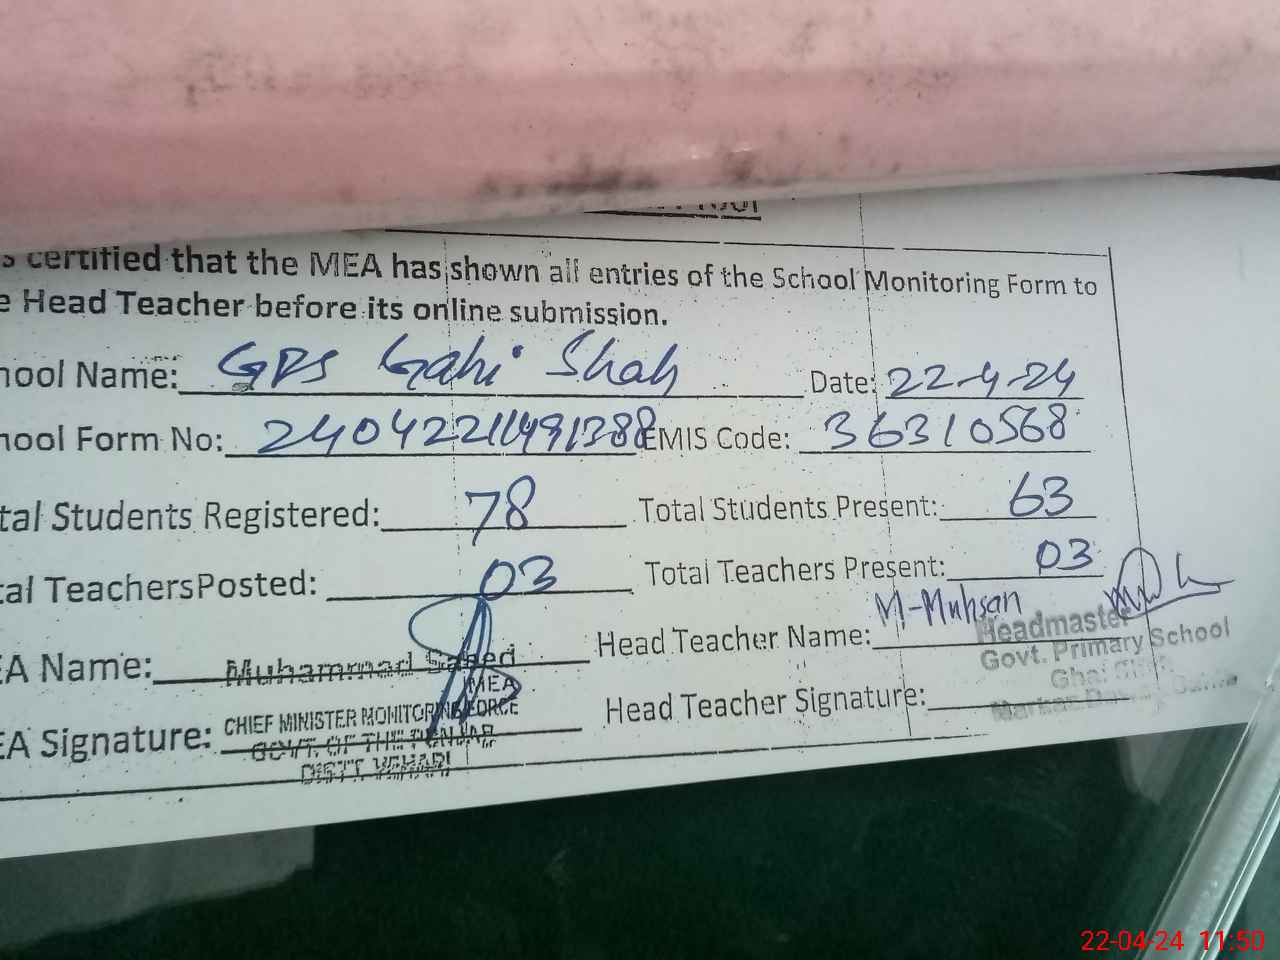 certified that the MEA has shown all entries of the School Monitoring Form to
Head Teacher before its online submission.
hool Name: GPS Gahi Shah Date: 22-4-24
hool Form No: EMIS Code: 36310568
tal Students Registered: 78 Total Students Present: 63
tal Teachers Posted: 03 Total Teachers Present: 03
EA Name: Muhammad Saeed Head Teacher Name: M-Muhsan
MEA Headmaster
Govt. Primary School
EA Signature: CHIEF MINISTER MONITORING FORCE Head Teacher Signature:
GOVT. OF THE PUNJAB
DISTT. VEHARI
22-04-24 11:50